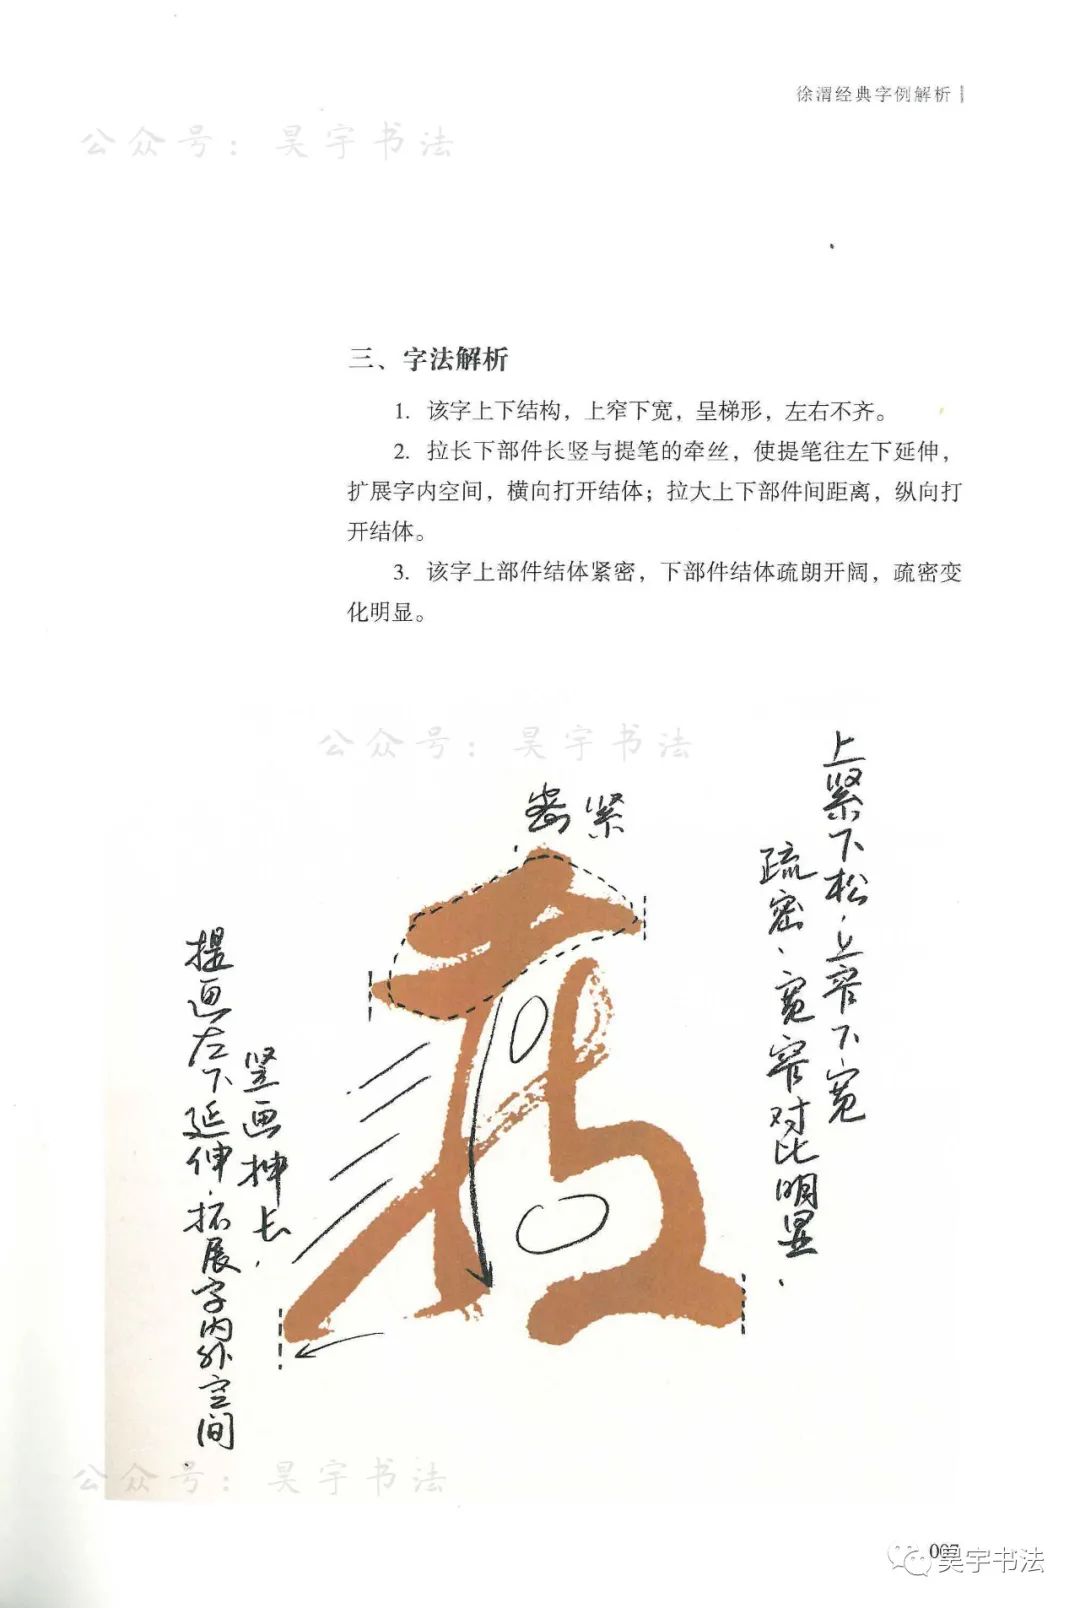 徐渭经典字例解析
公众号：昊宇书法
三、字法解析
1. 该字上下结构，上窄下宽，呈梯形，左右不齐。
2. 拉长下部件长竖与提笔的牵丝，使提笔往左下延伸，
扩展字内空间，横向打开结体；拉大上下部件间距离，纵向打
开结体。
3. 该字上部件结体紧密，下部件结体疏朗开阔，疏密变
化明显。
公众号：昊宇书法
上紧下松，上窄下宽
疏密、宽窄对比明显．
密紧
竖画抻长，
提画左下延伸，拓展字内外空间
公众号：昊宇书法
007
昊宇书法